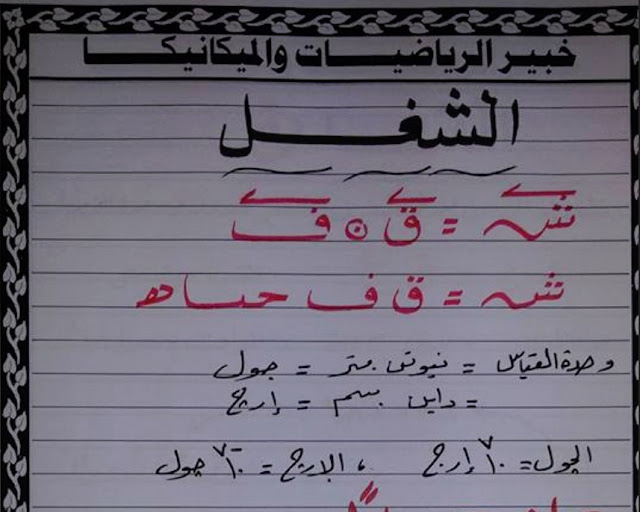 خبير الرياضيات والميكانيكا
الشغل
ش = ق ⊙ ف
ش = ق ف حتا ھ
وحدة القياس = نيوتن متر = جول
= داين سم = إرج
الجول = ١٠^٧ إرج ، الإرج = ١٠^-٧ جول